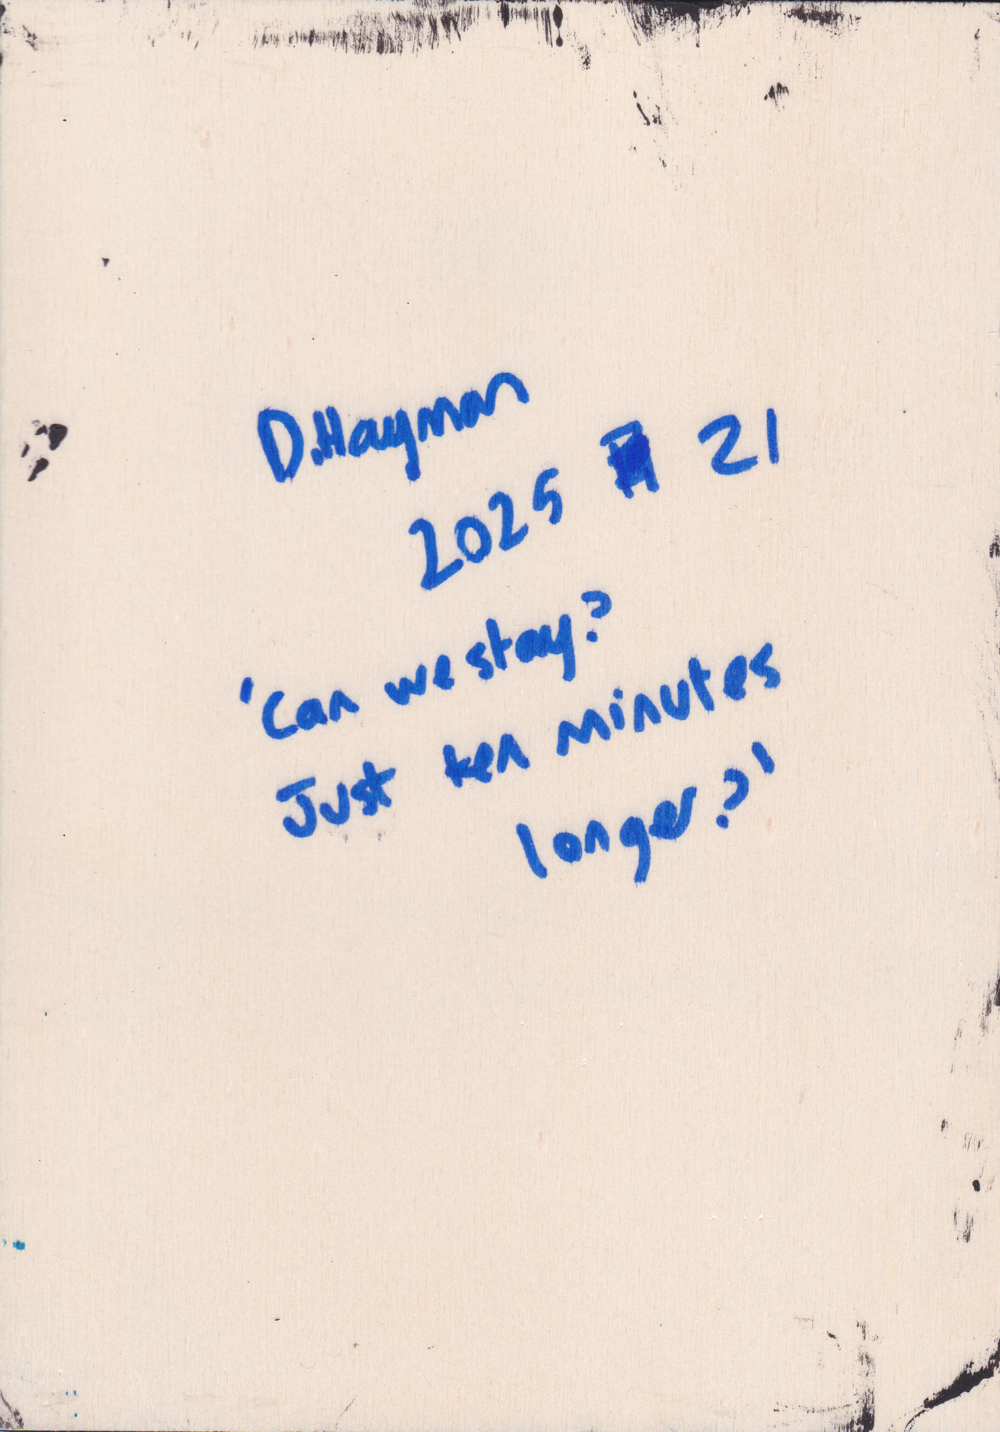 D.Hayman
2025 21
'Can we stay?
Just ten minutes
longer?'